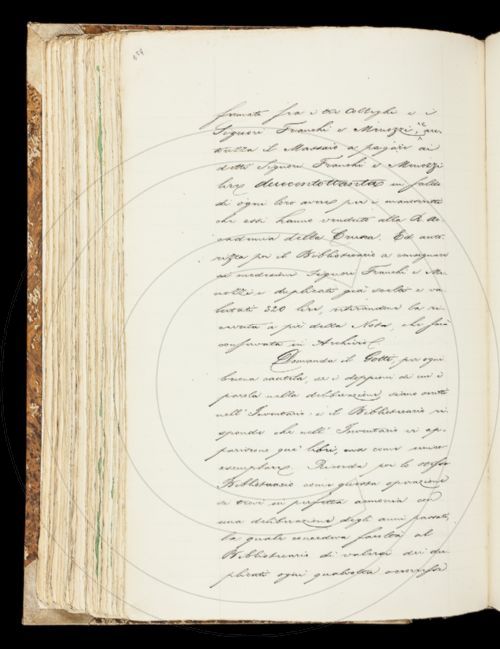 formato fra i tre Colleghi e i
Signori Franchi e Menozzi, au-
torizza il Massaio a pagare ai
detti Signori Franchi e Menozzi
lire duecentottanta in saldo
di ogni loro avere per i manoscritti
che essi hanno venduto alla R. Ac-
cademia della Crusca. Ed auto-
rizza poi il Bibliotecario a consegnare
ai medesimi Signori Franchi e Me-
nozzi i duplicati già scelti e va-
lutati 320 lire, ritirandone la ri-
cevuta a piè della Nota, che sarà
conservata in Archivio.
Domanda il Gotti, per ogni
buona cautela, se i doppioni di cui è
parola nella deliberazione siano notati
nell'Inventario: e il Bibliotecario ri-
sponde che nell'Inventario vi ap-
pariscono quei libri, ma come unico
esemplare. Ricorda poi lo stesso
Bibliotecario come questa operazione
si trovi in perfetta armonia con
una deliberazione degli anni passati,
la quale concedeva facoltà al
Bibliotecario di valersi dei du-
plicati ogni qualvolta